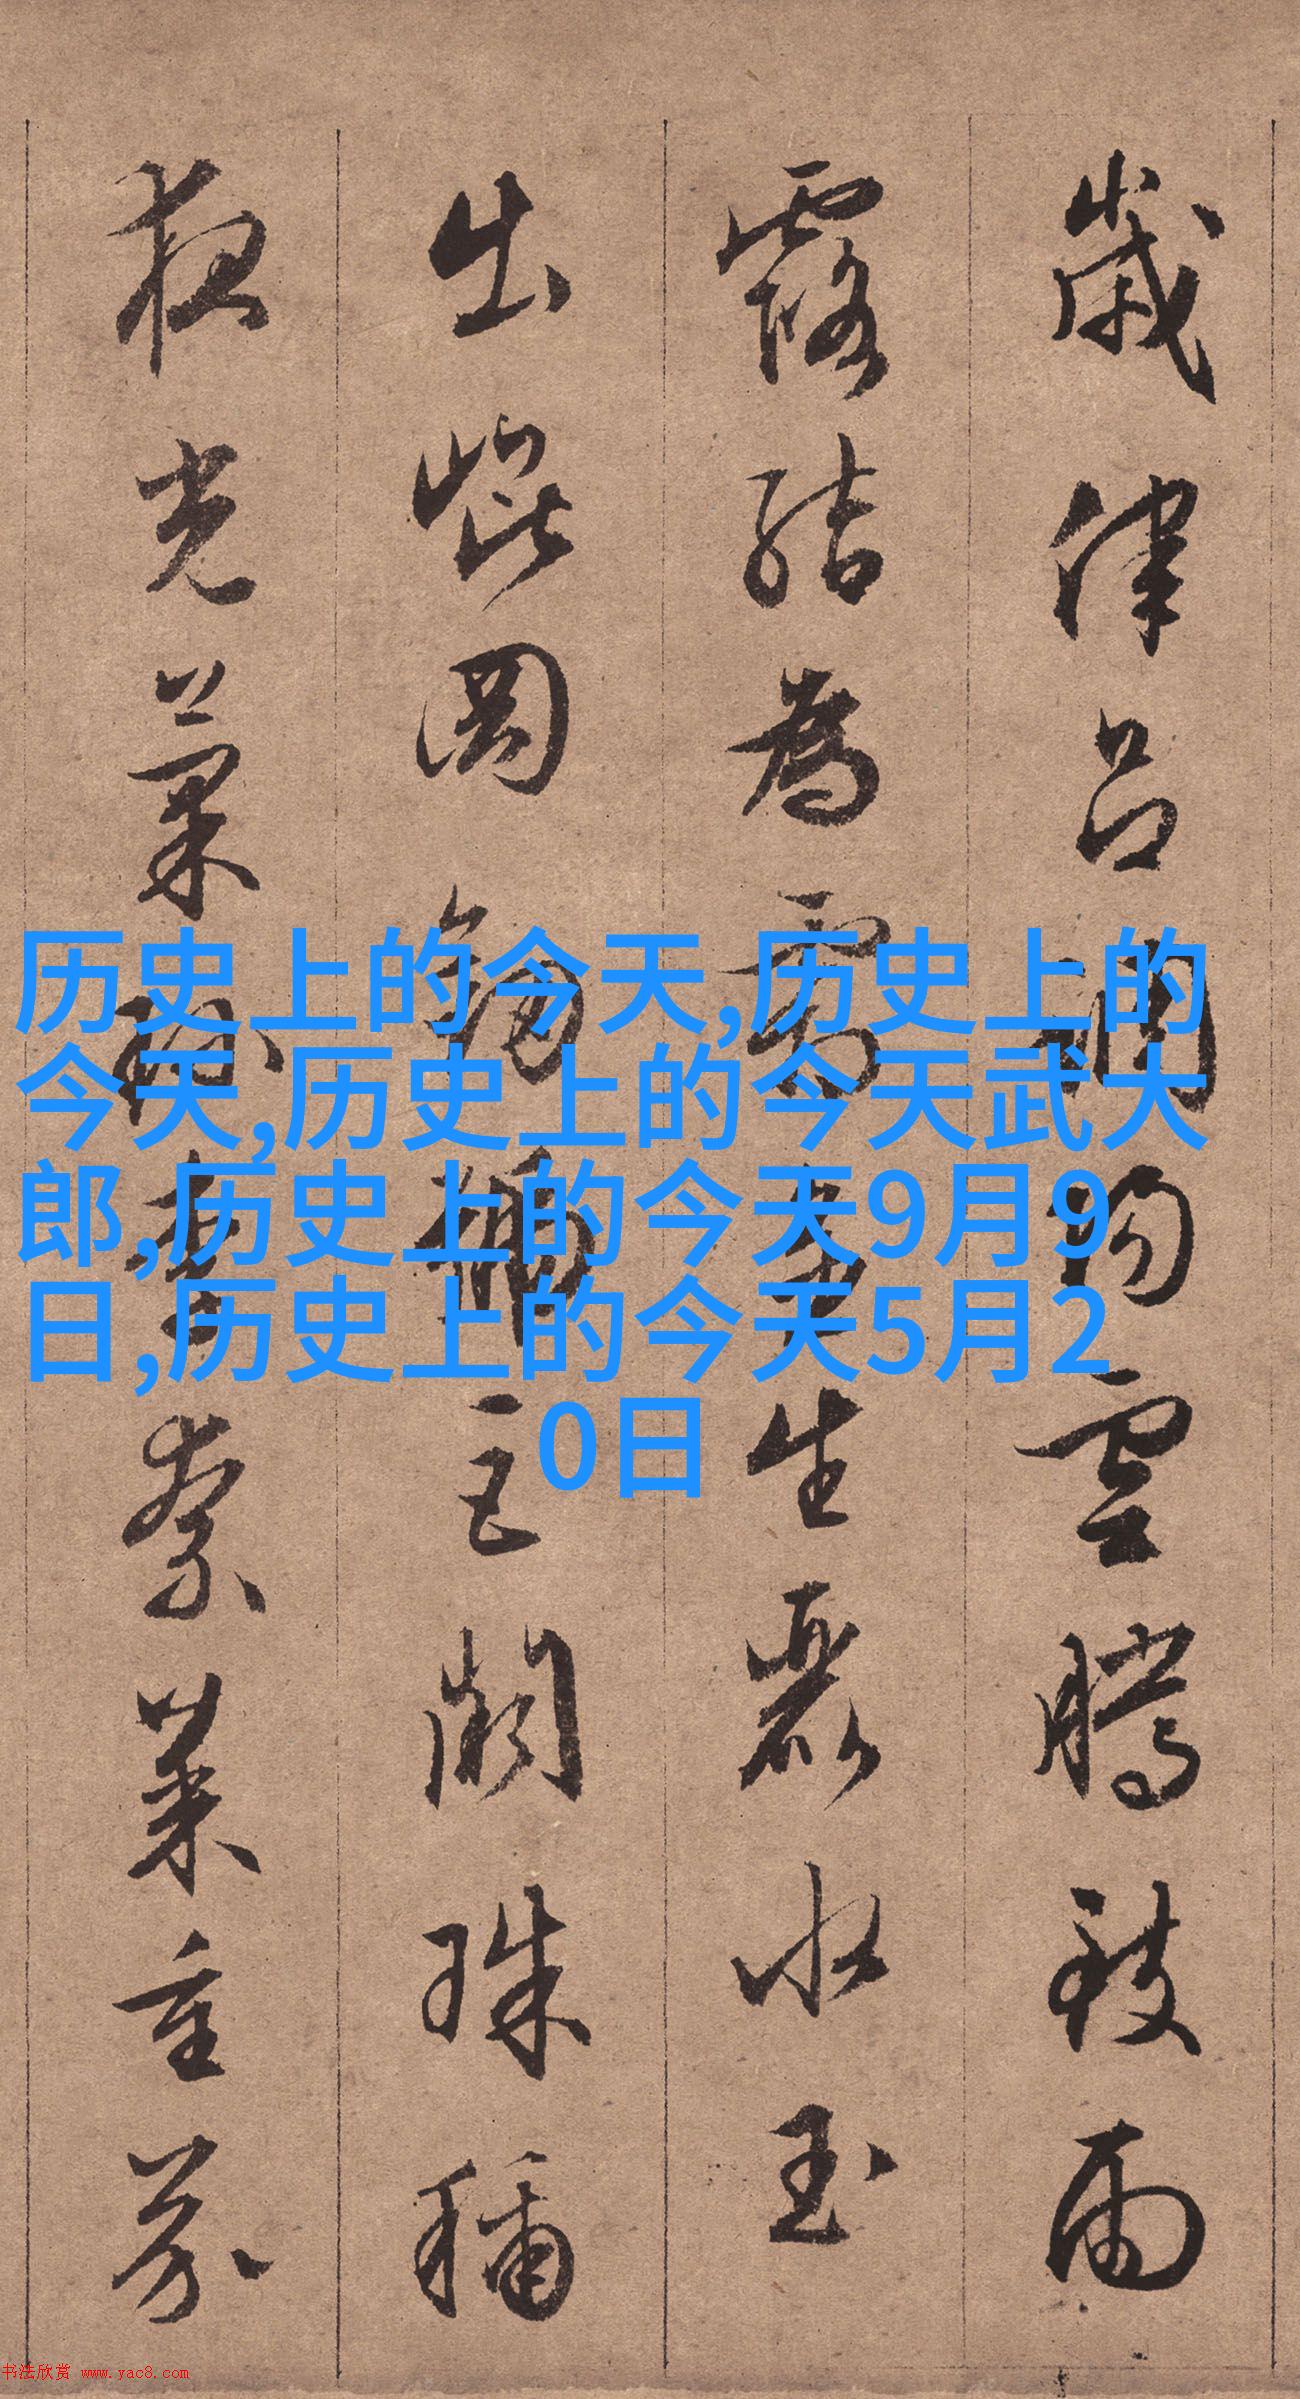 歲律吕調陽雲騰致雨
露結為霜金生麗水玉
出崐岡劍號巨闕珠稱
夜光菓珍李柰菜重芥
历史上的今天,历史上的
今天,历史上的今天武大
郎,历史上的今天9月9
日,历史上的今天5月2
0日
书法欣赏 www.yac8.com